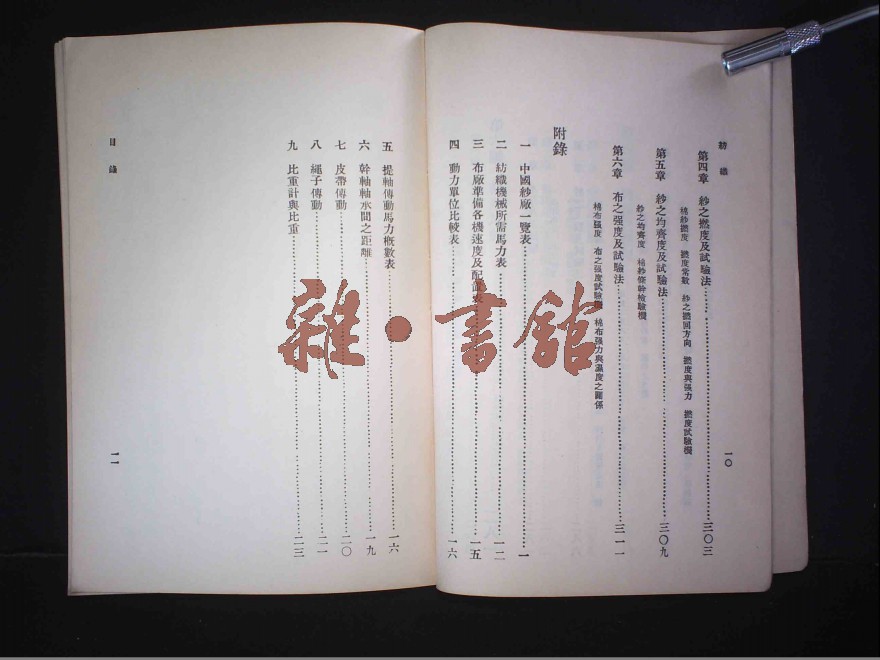 紡織
第四章 紗之撚度及試驗法……三〇三
棉紗撚度 撚度常數 紗之撚回方向 撚度與張力 撚度試驗機
第五章 紗之均齊度及試驗法……三〇九
紗之均齊度 棉紗條幹檢驗機
第六章 布之强度及試驗法……三一一
棉布强度 布之强度試驗機 棉布强力與濕度之關係
附錄
一 中國紗廠一覽表……一
二 紡織機械所需馬力表……一二
三 布廠準備各機速度及配置表……一五
四 動力單位比較表……一六
一〇
五 提軸傳動馬力概數表……一六
六 幹軸軸承間之距離……一九
七 皮帶傳動……二〇
八 繩子傳動……二一
九 比重計與比重……二三
目錄
一一
雜·書館